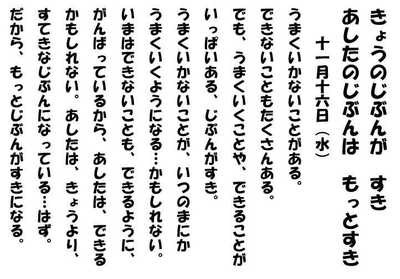 きょうのじぶんが　すき
あしたのじぶんは　もっとすき
十一月十六日（水）
うまくいかないことがある。
できないこともたくさんある。
でも、うまくいくことや、できることが
いっぱいある、じぶんがすき。
うまくいかないことが、いつのまにか
うまくいくようになる…かもしれない。
いまはできないことも、できるように、
がんばっているから、あしたは、できる
かもしれない。あしたは、きょうより、
すてきなじぶんになっている…はず。
だから、もっとじぶんがすきになる。